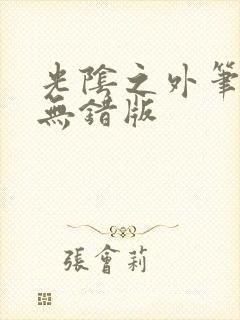 光陰之外筆
無錯版
張會莉